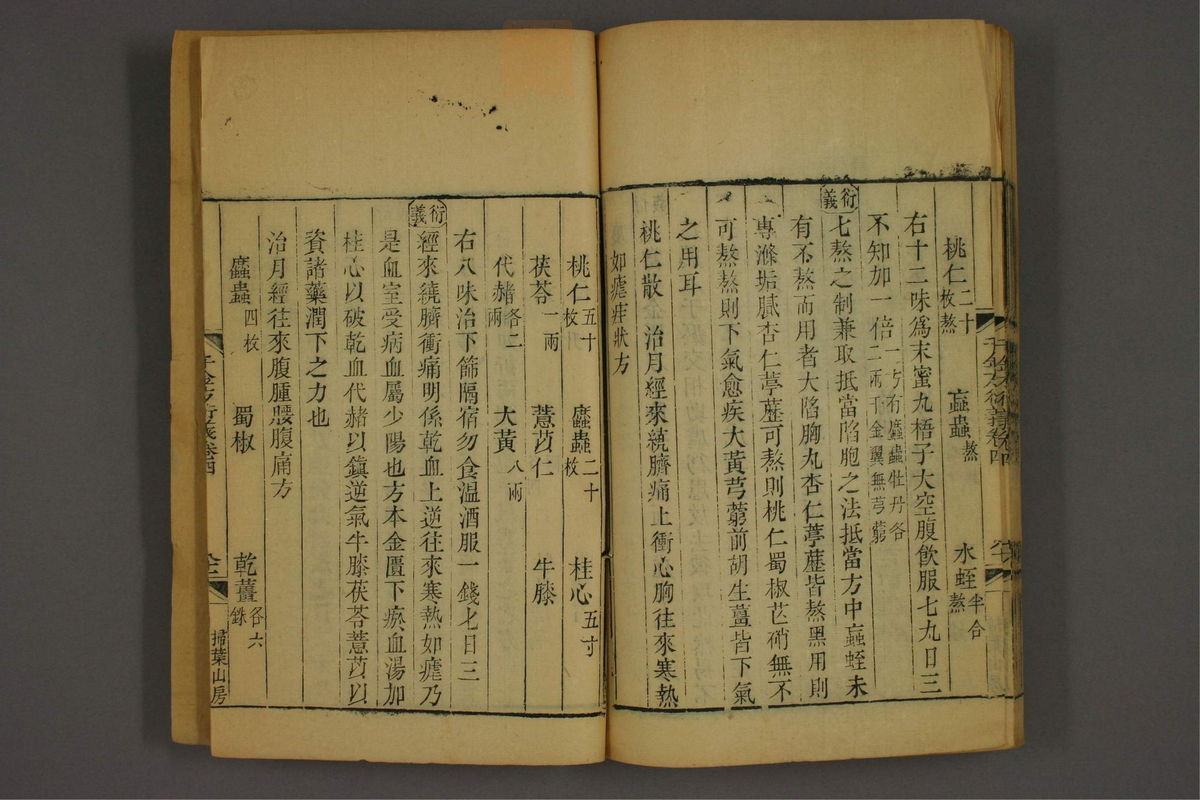 桃仁二十枚熬 蝱蟲熬 水蛭熬半合
右十二味為末蜜丸梧子大空腹飲服七丸日三
不知加一倍一方有䗪蟲牡丹各二兩千金翼無芎藭
衍義七熬之制兼取抵當陷胞之法抵當方中蝱蛭未
有不熬而用者大陷胸丸杏仁葶藶皆熬黑用則
專滌垢膩杏仁葶藶可熬則桃仁蜀椒芒硝無不
可熬熬則下氣愈疾大黃芎藭前胡生薑皆下氣
之用耳
桃仁散 治月經來繞臍痛上衝心胸往來寒熱
如瘧疰狀方
桃仁五十枚 䗪蟲二十枚 桂心五寸
茯苓一兩 薏苡仁 牛膝
代赭各二兩 大黃八兩
右八味治下篩隔宿勿食温酒服一錢匕日三
衍義經來繞臍衝痛明係乾血上逆往來寒熱如瘧乃
是血室受病血屬少陽也方本金匱下瘀血湯加
桂心以破乾血代赭以鎮逆氣牛膝茯苓薏苡以
資諸藥潤下之力也
治月經往來腹腫腰腹痛方
䗪蟲四枚 蜀椒 乾薑各六銖
千金方衍義卷四
掃葉山房